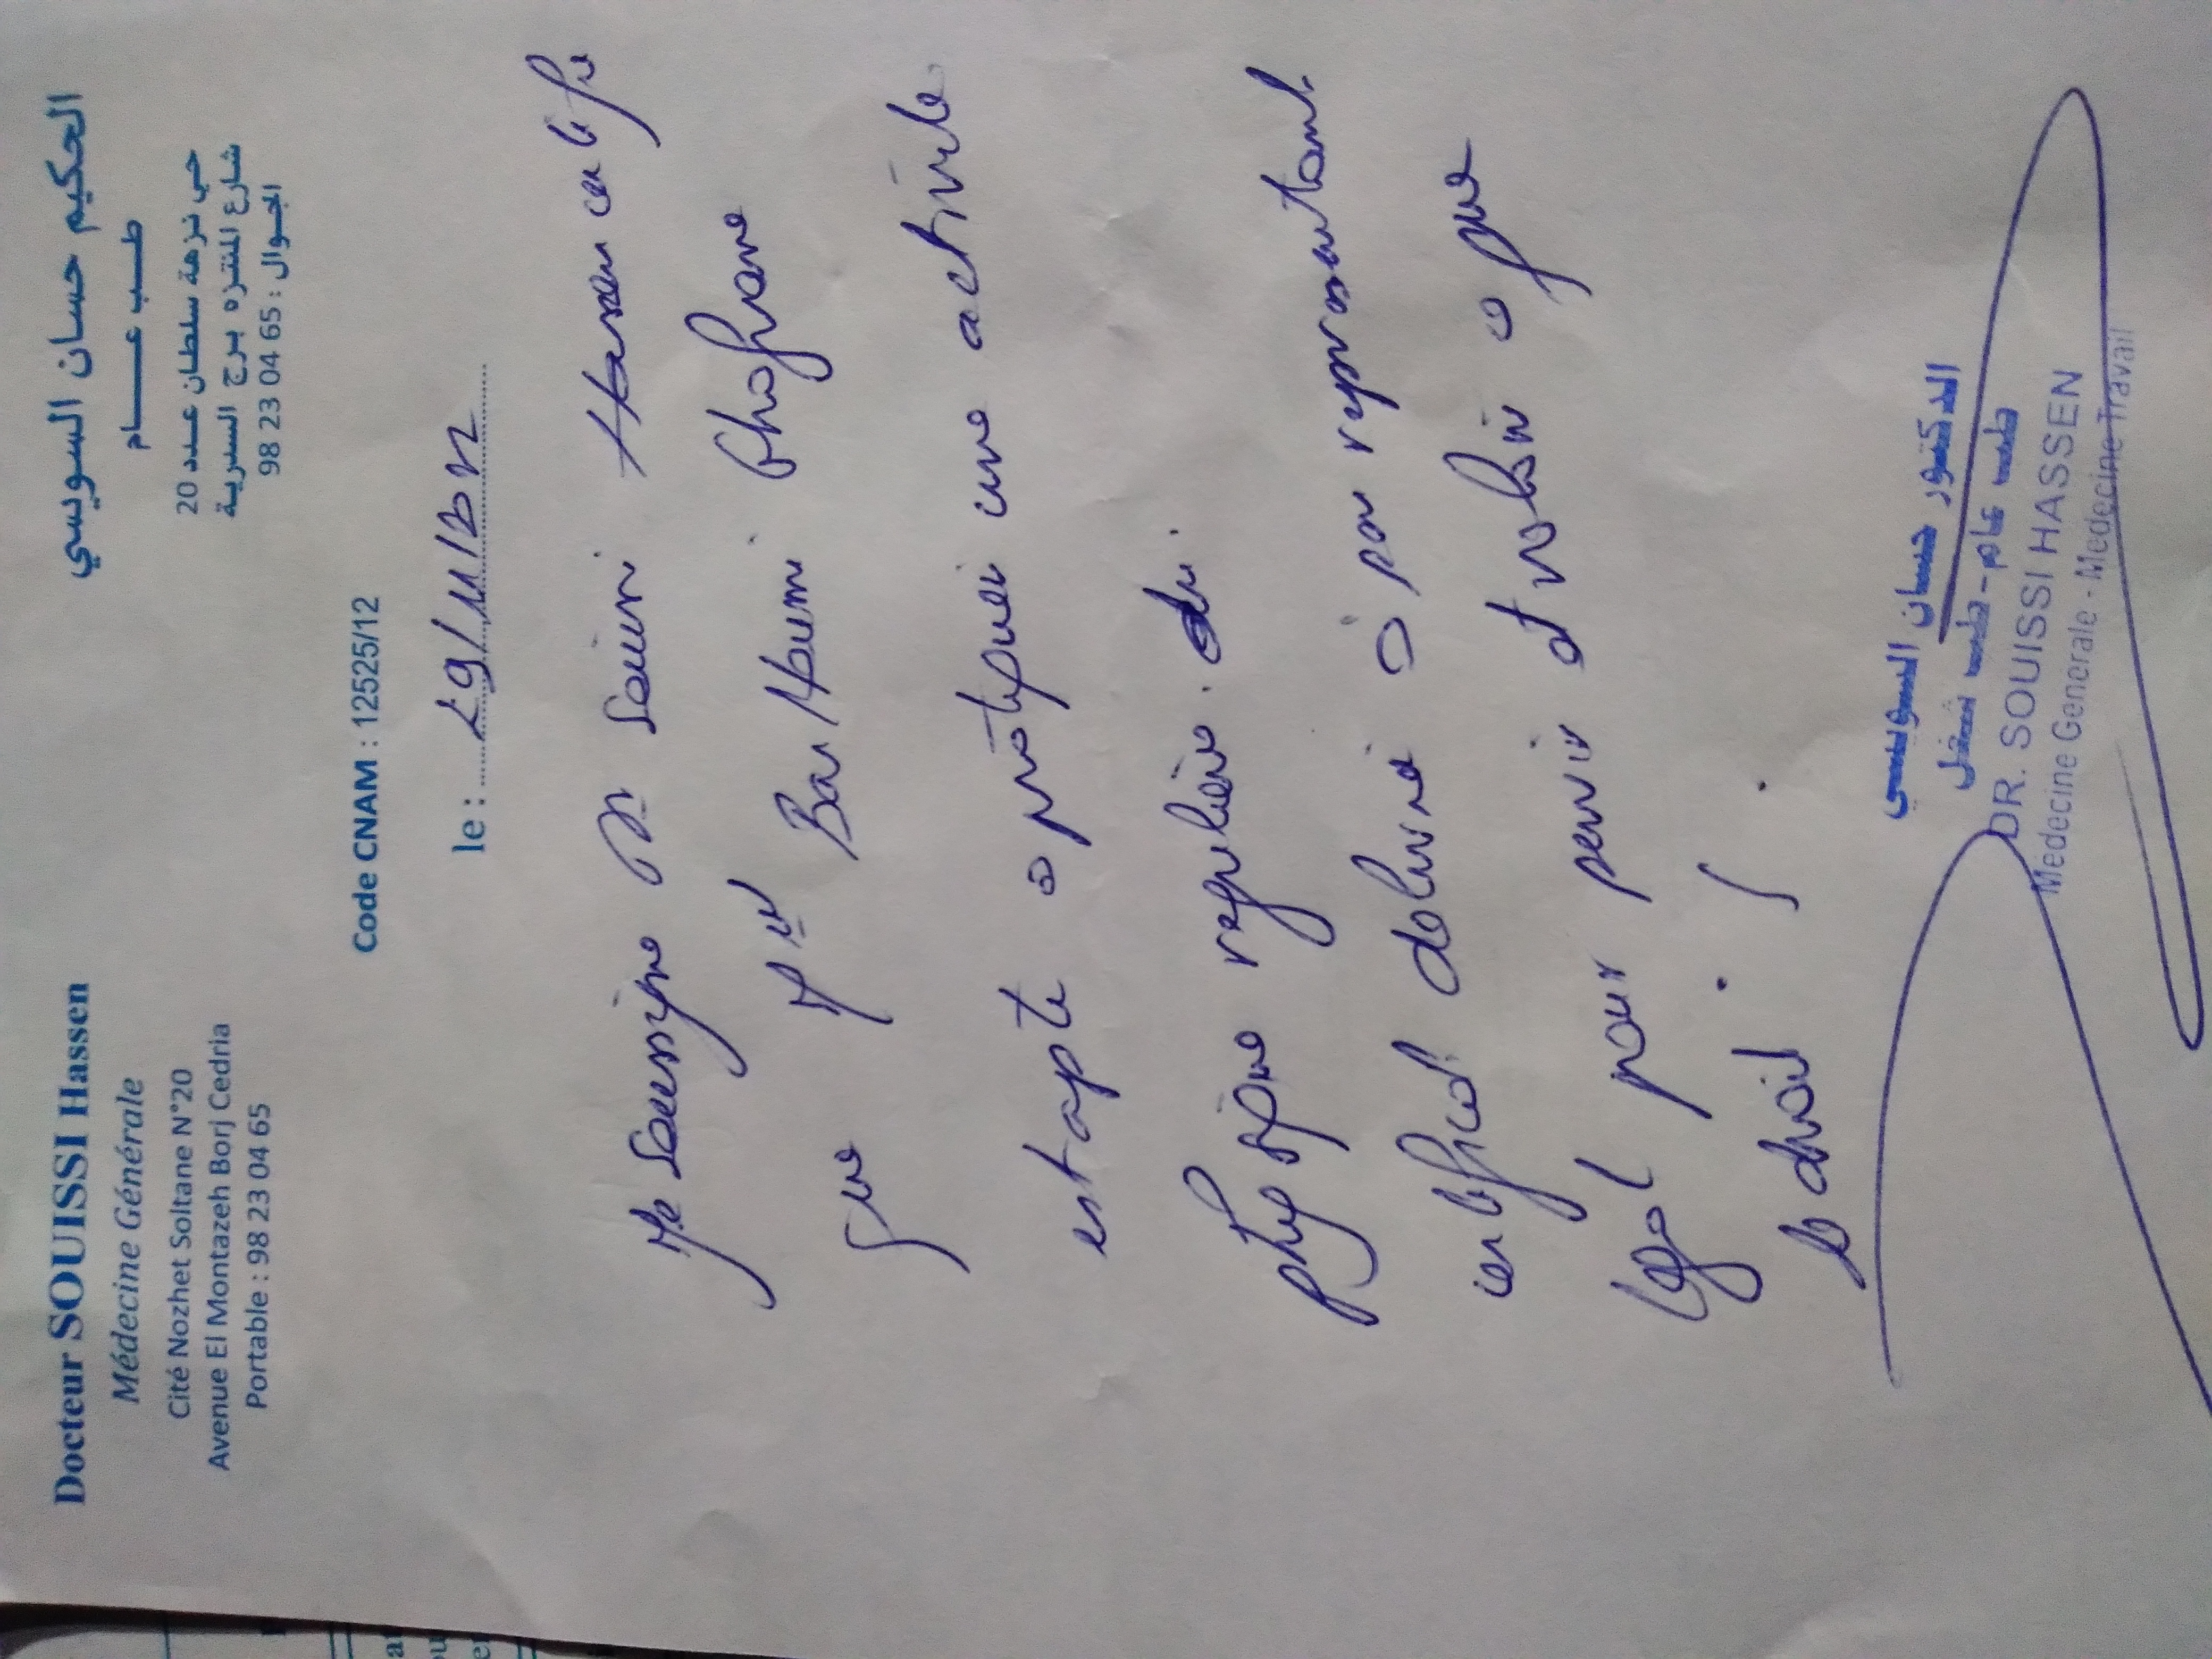 Docteur SOUISSI Hassen
Médecine Générale
Cité Nozhet Soltane N°20
Avenue El Montazeh Borj Cedria
Portable : 98 23 04 65
الحكيم حسان السويسي
طب عام
حي نزهة سلطان عدد 20
شارع المنتزه برج السدرية
الجوال : 98 23 04 65
Code CNAM : 12525/12
le : 29/11/
Je soussigné Dr Souissi Hassen certifie
que Mlle Barhoumi
est apte a pratiquer une activité
physique reguliere.
certificat délivré à son representant
legal pour servir et valoir a que
de droit
الدكتور حسان السويسي
طب عام - طب شغل
DR. SOUISSI HASSEN
Medecine Generale - Medecine Travail